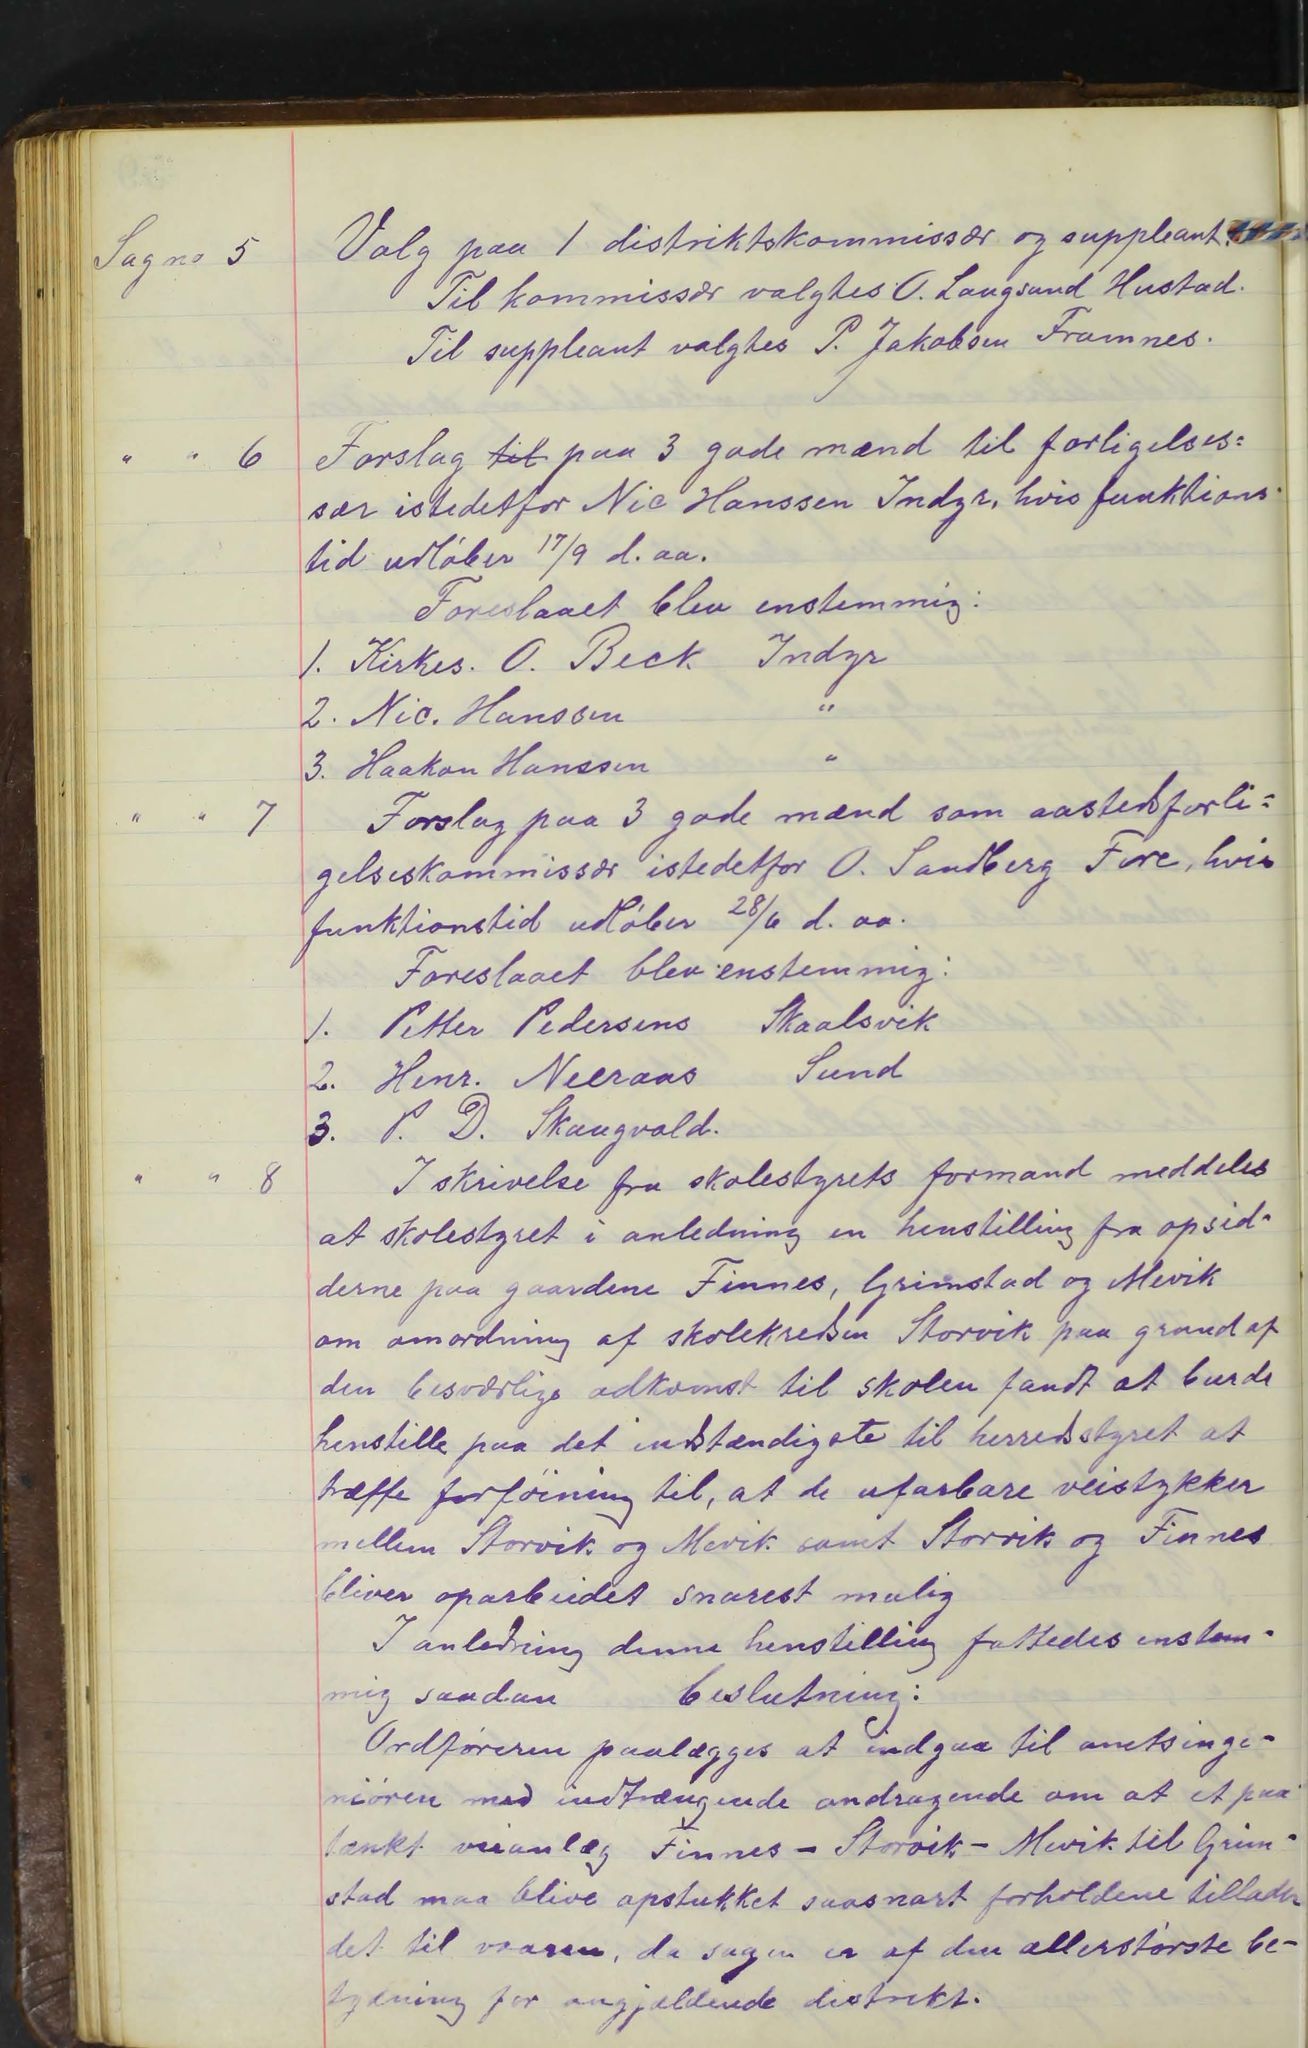 Sag no 5 Valg paa 1 distriktskommissær og suppleant.
Til kommissær valgtes O. Langsund Hustad.
Til suppleant valgtes P. Jakobsen Framnes.
" " 6 Forslag til paa 3 gode mænd til forligelses=
sær istedetfor Nic Hanssen Indyr, hvis funktions
tid udløber 17/9 d. aa.
Foreslaaet blev enstemmig:
1. Kirkes. O. Beck Indyr
2. Nic. Hanssen "
3. Haakon Hanssen "
" " 7 Forslag paa 3 gode mænd som aastedsforli=
gelseskommissær istedetfor O. Sandberg Fore, hvis
funktionstid udløber 28/6 d. aa.
Foreslaaet blev enstemmig:
1. Petter Pedersens Skaalsvik
2. Henr. Neeraas Sund
3. P. D. Skaugvold.
" " 8 I skrivelse fra skolestyrets formand meddeles
at skolestyret i anledning en henstilling fra opsid-
derne paa gaardene Finnes, Grimstad og Mevik
om omordning af skolekredsen Storvik paa grund af
den besværlige adkomst til skolen fandt at burde
henstille paa det indstændigste til herredsstyret at
træffe forføining til, at de ufarbare veistykker
mellem Storvik og Mevik samt Storvik og Finnes
bliver oparbeidet snarest mulig
I anledning denne henstilling fattedes enstem-
mig saadan beslutning:
Ordføreren paalægges at indgaa til amtsinge-
niøren med indtrængende andragende om at et paa
tænkt veianlæg Finnes - Storvik - Mevik til Grim-
stad maa blive opstukket saasnart forholdene tillader
det til vaaren, da sagen er af den allerstørste be-
tydning for angjældende distrikt.